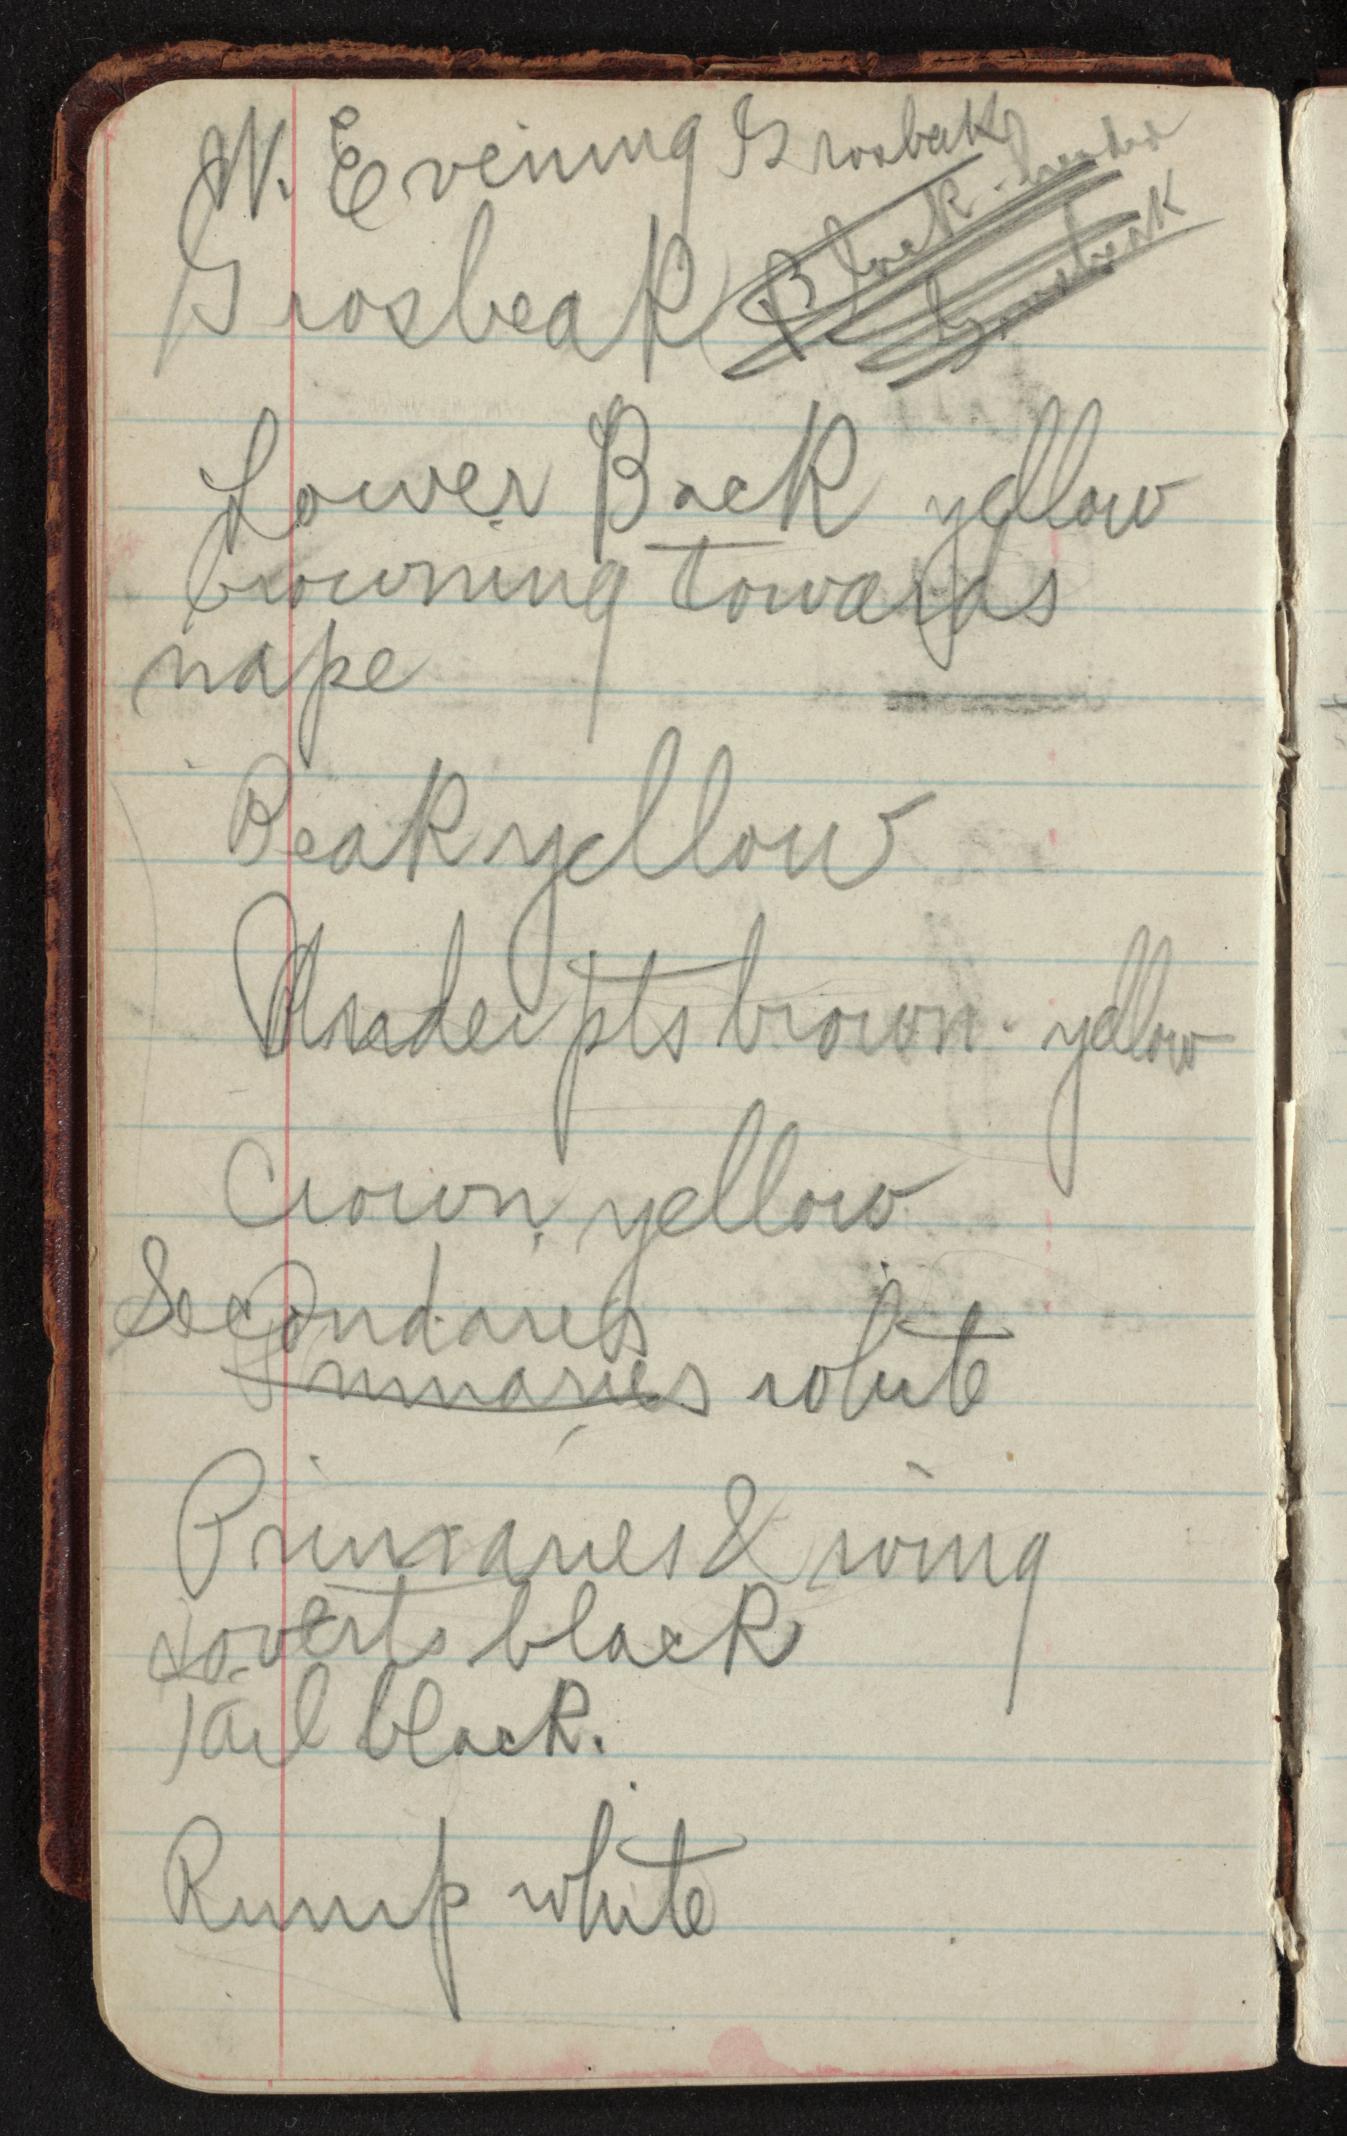 W. Evening Grosbeak
Grosbeak Black-headed
Grosbeak
Lower Back yellow
browning towards
nape
Beak yellow
Under pts brown-yellow
Crown yellow
Secondaries
Primaries white
Primaries & wing
coverts black
Tail black.
Rump white